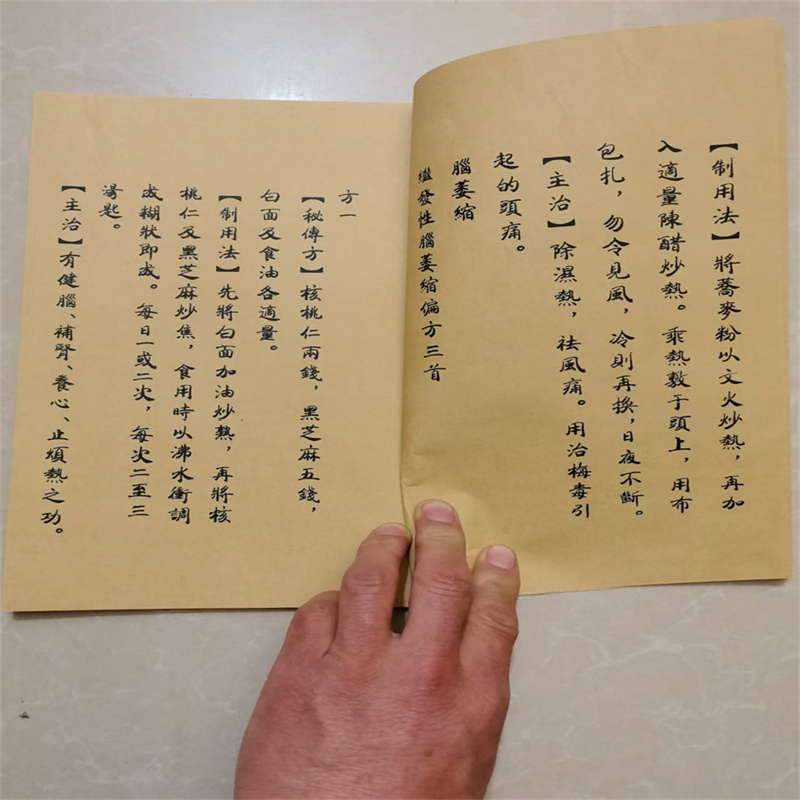 【制用法】將蕎麥粉以文火炒熱，再加
入適量陳醋炒熱。乘熱敷于頭上，用布
包扎，勿令見風，冷則再換，日夜不斷。
【主治】除濕熱，祛風痛。用治梅毒引
起的頭痛。
腦萎縮
繼發性腦萎縮偏方三首
方一
【秘傳方】核桃仁兩錢，黑芝麻五錢，
白面及食油各適量。
【制用法】先將白面加油炒熟，再將核
桃仁及黑芝麻炒焦，食用時以沸水衝調
成糊狀即成。每日一或二次，每次二至三
湯匙。
【主治】有健腦、補腎、養心、止煩熱之功。